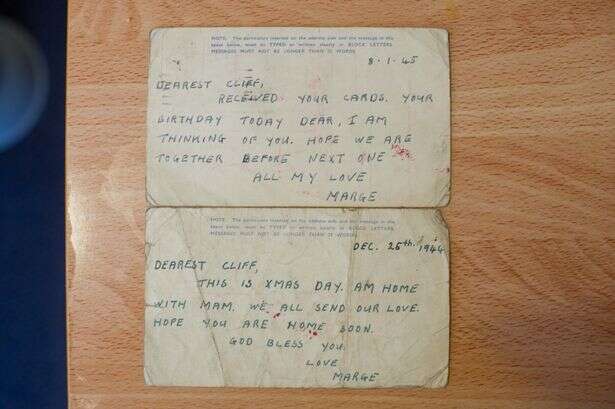 NOTE. The particulars inserted on the address side and the message in the
space below, must be TYPED or written clearly in BLOCK LETTERS.
MESSAGES MUST NOT BE LONGER THAN 25 WORDS.
8·1·45
DEAREST CLIFF,
RECEIVED YOUR CARDS. YOUR
BIRTHDAY TODAY DEAR, I AM
THINKING OF YOU. HOPE WE ARE
TOGETHER BEFORE NEXT ONE
ALL MY LOVE
MARGE
NOTE. The particulars inserted on the address side and the message in the
space below, must be TYPED or written clearly in BLOCK LETTERS.
MESSAGES MUST NOT BE LONGER THAN 25 WORDS.
DEC. 25th. 1944
DEAREST CLIFF,
THIS IS XMAS DAY. AM HOME
WITH MAM. WE ALL SEND OUR LOVE.
HOPE YOU ARE HOME SOON.
GOD BLESS YOU.
LOVE
MARGE